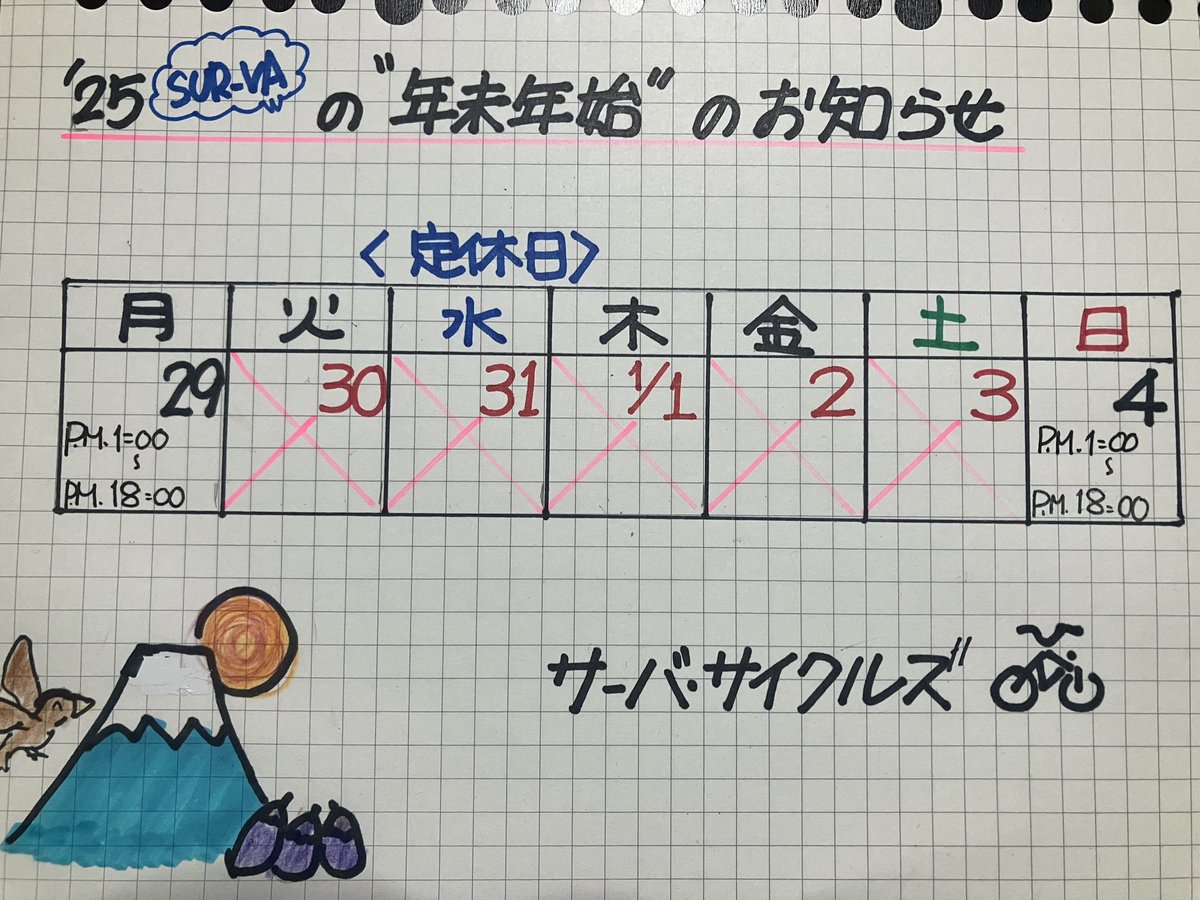 '25 SUR-VA の "年未年始" のお知らせ
〈定休日〉
月 火 水 木 金 土 日
29 30 31 1/1 2 3 4
P.M.1=00 P.M.1=00
S S
P.M.18=00 P.M.18=00
サーバ・サイクルズ